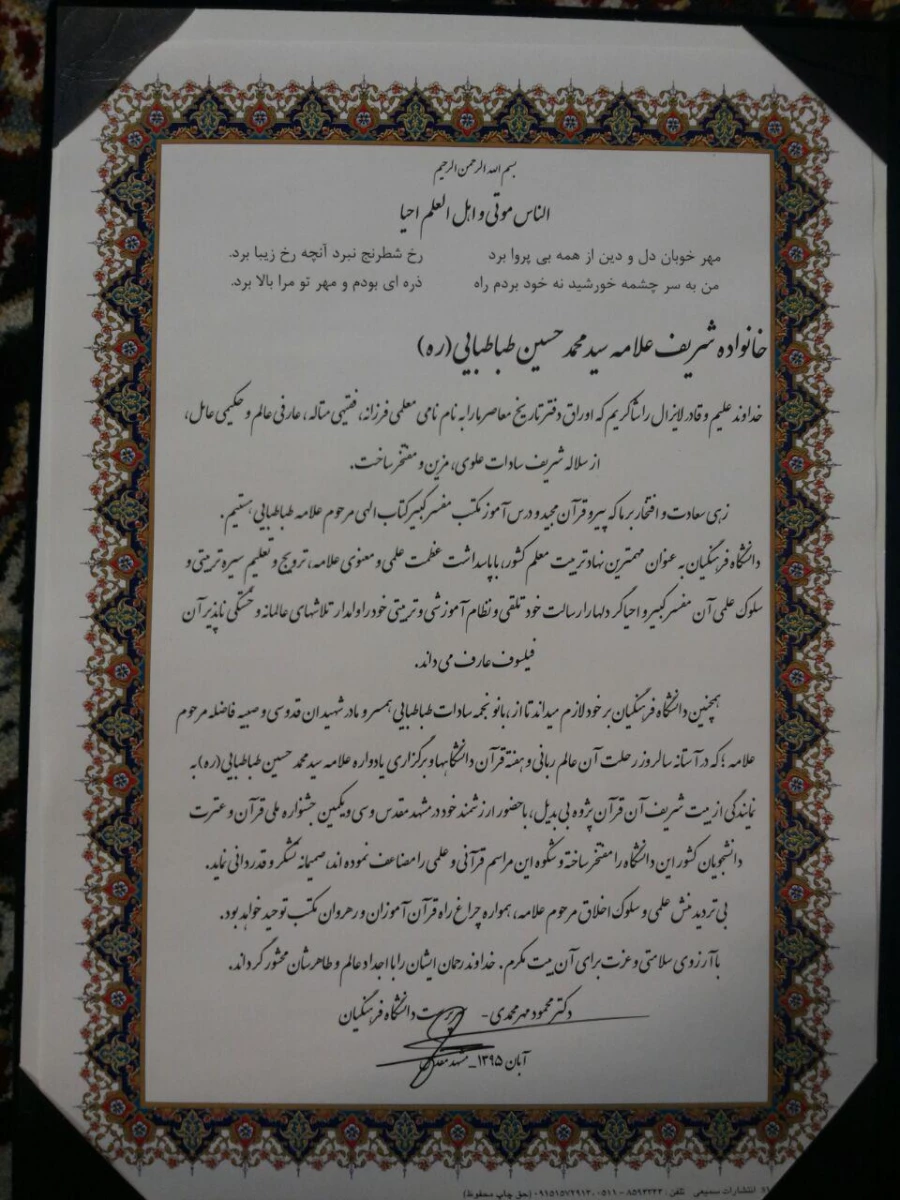 بسم الله الرحمن الرحیم
الناس موتی و اهل العلم احیا
مهر خوبان دل و دین از همه بی پروا برد رخ شطرنج نبرد آنچه رخ زیبا برد.
من به سر چشمه خورشید نه خود بردم راه ذره ای بودم و مهر تو مرا بالا برد.
خانواده شریف علامه سید محمد حسین طباطبایی (ره)
خداوند علیم و قادر لایزال را شاکریم که اوراق دفتر تاریخ معاصر ما را به نام نامی معلمی فرزانه، فقیهی متاله، عارفی عالم و حکیمی عامل،
از سلاله شریف سادات علوی، مزین و مفتخر ساخت.
زهی سعادت و افتخار بر ما که پیرو قرآن مجید و درس آموز مکتب مفسر کبیر کتاب الهی مرحوم علامه طباطبایی هستیم.
دانشگاه فرهنگیان به عنوان مهمترین نهاد تربیت معلم کشور، با پاسداشت عظمت علمی و معنوی علامه، ترویج و تعلیم سیره تربیتی و
سلوک علمی آن مفسر کبیر و احیاگر دلها را رسالت خود تلقی و نظام آموزشی و تربیتی خود را وامدار تلاشهای عالمانه و خستگی ناپذیر آن
فیلسوف عارف می داند.
همچنین دانشگاه فرهنگیان بر خود لازم میداند تا از، بانو نجمه سادات طباطبایی همسر و مادر شهیدان قدوسی و صبیه فاضله مرحوم
علامه؛ که در آستانه سالروز رحلت آن عالم ربانی و هفته قرآن دانشگاهها و برگزاری یادواره علامه سید محمد حسین طباطبایی (ره) به
نمایندگی از بیت شریف آن قرآن پژوه بی بدیل، با حضور ارزشمند خود در مشهد مقدس و سی و یکمین جشنواره ملی قرآن و عترت
دانشجویان کشور این دانشگاه را مفتخر ساخته و شکوه این مراسم قرآنی و علمی را مضاعف نموده اند، صمیمانه تشکر و قدردانی نماید.
بی تردید منش علمی و سلوک اخلاق مرحوم علامه، همواره چراغ راه قرآن آموزان و رهروان مکتب توحید خواهد بود.
با آرزوی سلامتی و عزت برای آن بیت مکرم. خداوند رحمان ایشان را با اجداد عالم و طاهرشان محشور گرداند.
دکتر محمود مهرمحمدی - سرپرست دانشگاه فرهنگیان
آبان ۱۳۹۵_مشهد مقدس
انتشارات سمیعی تلفن: ۸۵۹۴۲۴۳ - ۰۵۱۱ ۰۹۱۵۱۵۷۲۹۱۳ (حق چاپ محفوظ)